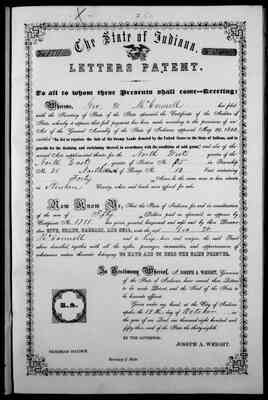 The State of Indiana.
LETTERS PATENT.
To all to whom these Presents shall come—Greeting:
Whereas, Geo. W McConnell has filed
with the Secretary of State of the State aforesaid the Certificate of the Auditor of
State, whereby it appears that full payment has been made according to the provisions of an
Act of the General Assembly of the State of Indiana approved May 29, 1852,
entitled "An Act to regulate the Sale of the Swamp Lands donated by the United States to the State of Indiana, and to
provide for the draining and reclaiming thereof, in accordance with the condition of said grant," and also of the
several Acts supplemental thereto for the North West quarter of the
North East quarter of Section No. 25 in Township
No. 30 North of Range No. 10 West containing
Forty Acres be the same more or less situate
in Newton County, which said tract was offered for sale.
Now Know Ye, That the State of Indiana for and in consideration
of the sum of Fifty Dollars paid as aforesaid, as appears by
Certificate No. 1711 has given, granted, bargained and sold, and by these Presents
DOTH GIVE, GRANT, BARGAIN, AND SELL, unto the said Geo. W.
McConnell and to heirs and assigns the said Tract
above described together with all the rights, privileges, immunities, and appurtenances of
whatsoever nature thereunto belonging TO HAVE AND TO HOLD THE SAME FOREVER.
In Testimony Whereof, I JOSEPH A. WRIGHT, Governor
of the State of Indiana have caused these Letters
to be made Patent, and the Seal of the State to
be hereunto affixed.
L.S.
Given under my hand, at the City of Indianapolis
the 12th day of October in
the year of our Lord one thousand eight hundred and
fifty three and of the State the thirty-eighth
BY THE GOVERNOR,
JOSEPH A. WRIGHT.
Secretary of State